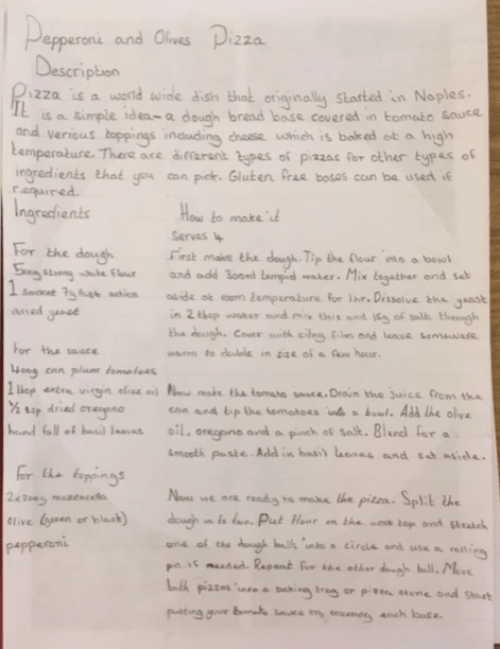 Pepperoni and Olives Pizza
Description
Pizza is a world wide dish that originally started in Naples.
It is a simple idea-a dough bread base covered in tomato sauce
and verious toppings including cheese which is baked at a high
temperature. There are different types of pizzas for other types of
ingredients that you can pick. Gluten free bases can be used if
required.
Ingredients
For the dough
500g strong white flour
1 sachet 7g fast action
dried yeast
For the sauce
400g can plum tomatoes
1 tbsp extra virgin olive oil
1/2 tsp dried oregano
hand full of basil leaves
For the toppings
2x200g mozzarella
olive (green or black)
pepperoni
How to make it
Serves 4
First make the dough. Tip the flour into a bowl
and add 300ml tempid water. Mix together and set
aside at room temperature for 1hr. Dissolve the yeast
in 2 tbsp water and mix this and 15g of salt through
the dough. Cover with cling film and leave somewere
warm to double in size of a few hour.
Now make the tomato sauce. Drain the juice from the
can and tip the tomatoes into a bowl. Add the olive
oil, oregano and a pinch of salt. Blend for a
smooth paste. Add in basil leaves and set aside.
Now we are ready to make the pizza. Split the
dough in to two. Put flour on the work top and stretch
one of the dough balls into a circle and use a rolling
pin if needed. Repeat for the other dough ball. Move
both pizzas into a baking tray or pizza stone and start
putting your tomato sauce on, covering each base.